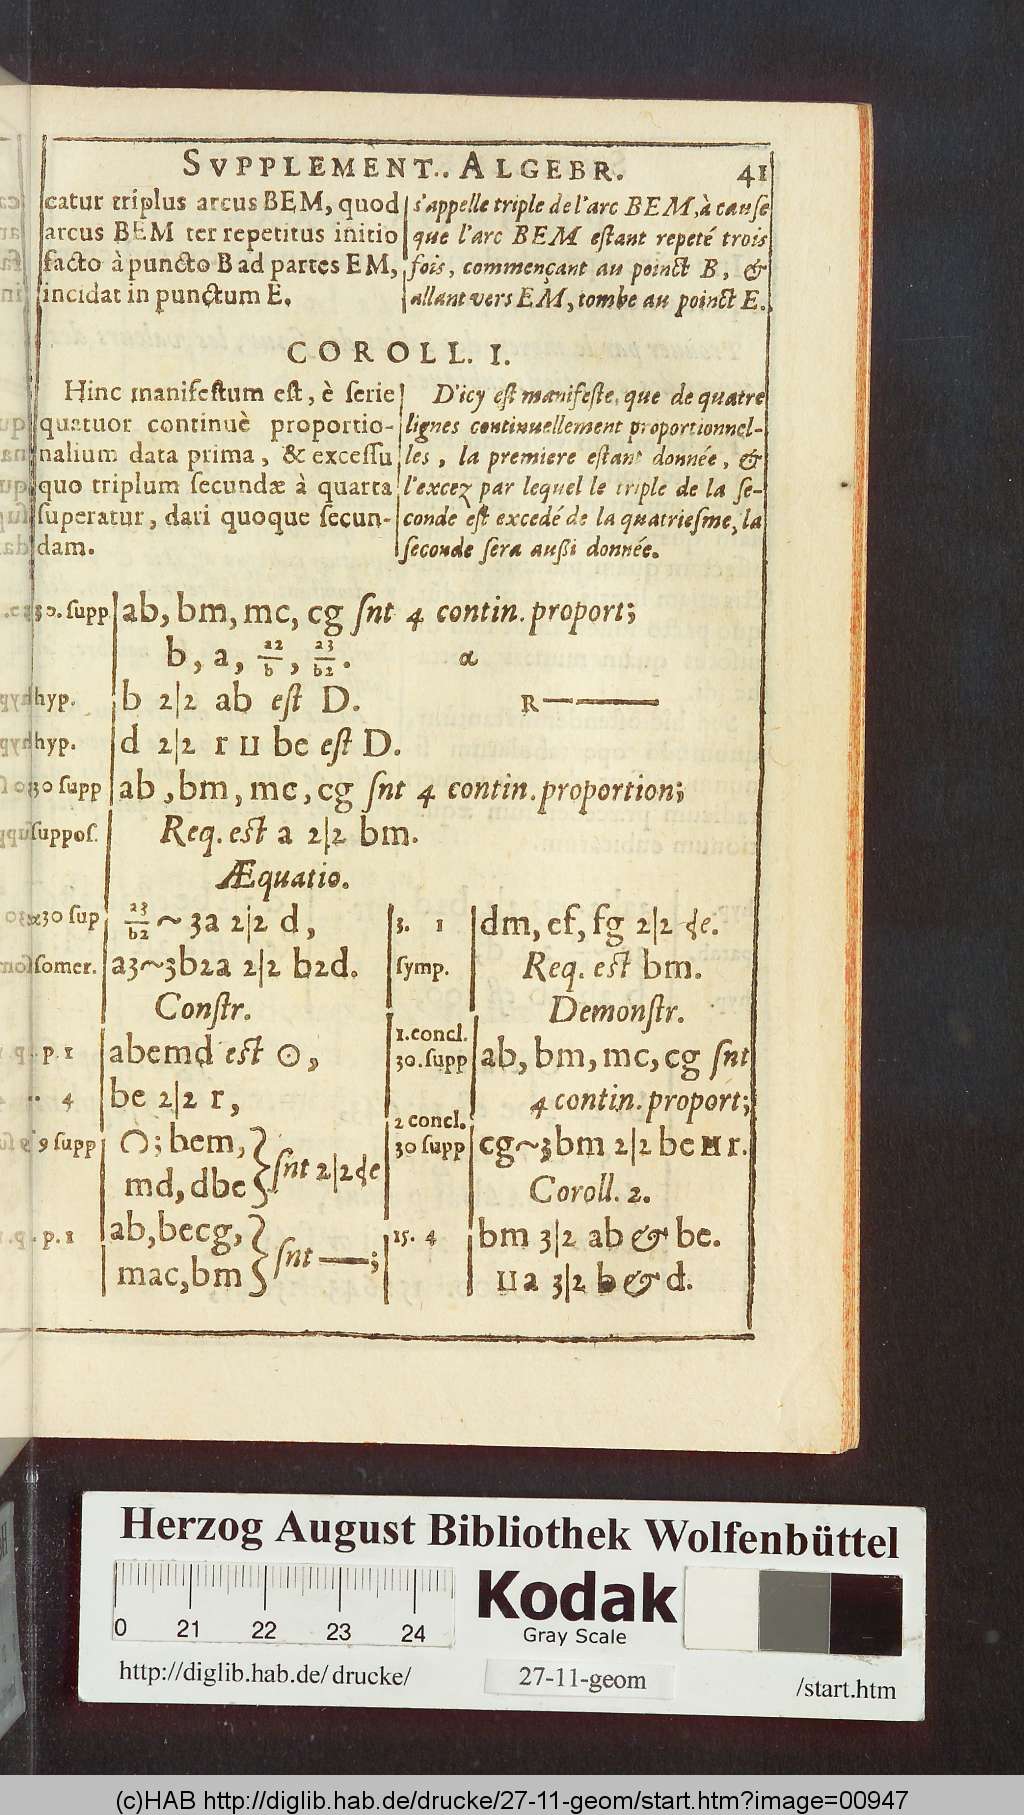 SVPPLEMENT.. ALGEBR. 41
catur triplus arcus BEM, quod
arcus BEM ter repetitus initio
facto à puncto B ad partes EM,
incidat in punctum E.
s'appelle triple de l'arc BEM, à cause
que l'arc BEM estant repeté trois
fois, commençant au poinct B, &
allant vers EM, tombe au poinct E.
COROLL. I.
Hinc manifestum est, è serie
quatuor continuè proportio-
nalium data prima, & excessu
quo triplum secundæ à quarta
superatur, dari quoque secun-
dam.
D'icy est manifeste, que de quatre
lignes continuellement proportionnel-
les, la premiere estant donnée, &
l'excez par lequel le triple de la se-
conde est excedé de la quatriesme, la
seconde sera außi donnée.
30. supp ab, bm, mc, cg snt 4 contin. proport;
b, a, a2/b, a3/b2. α
hyp. b 2|2 ab est D. R
hyp. d 2|2 r ⊔ be est D.
30 supp ab, bm, mc, cg snt 4 contin. proportion;
suppos. Req. est a 2|2 bm.
Æquatio.
30 sup a3/b2 ~ 3a 2|2 d,
somer. a3~3b2a 2|2 b2d.
Constr.
p. 1 abemd est ⊙,
4 be 2|2 r,
9 supp ⌒; bem, md, dbe } snt 2|2 de
p. 1 ab, becg, mac, bm } snt —;
3. 1 dm, ef, fg 2|2 de.
symp. Req. est bm.
Demonstr.
1. concl.
30. supp ab, bm, mc, cg snt
4 contin. proport;
2 concl.
30 supp cg~3bm 2|2 be ⊔ r.
Coroll. 2.
15. 4 bm 3|2 ab & be.
⊔ a 3|2 b & d.
Herzog August Bibliothek Wolfenbüttel
0 21 22 23 24
Kodak
Gray Scale
http://diglib.hab.de/drucke/ 27-11-geom /start.htm
(c)HAB http://diglib.hab.de/drucke/27-11-geom/start.htm?image=00947